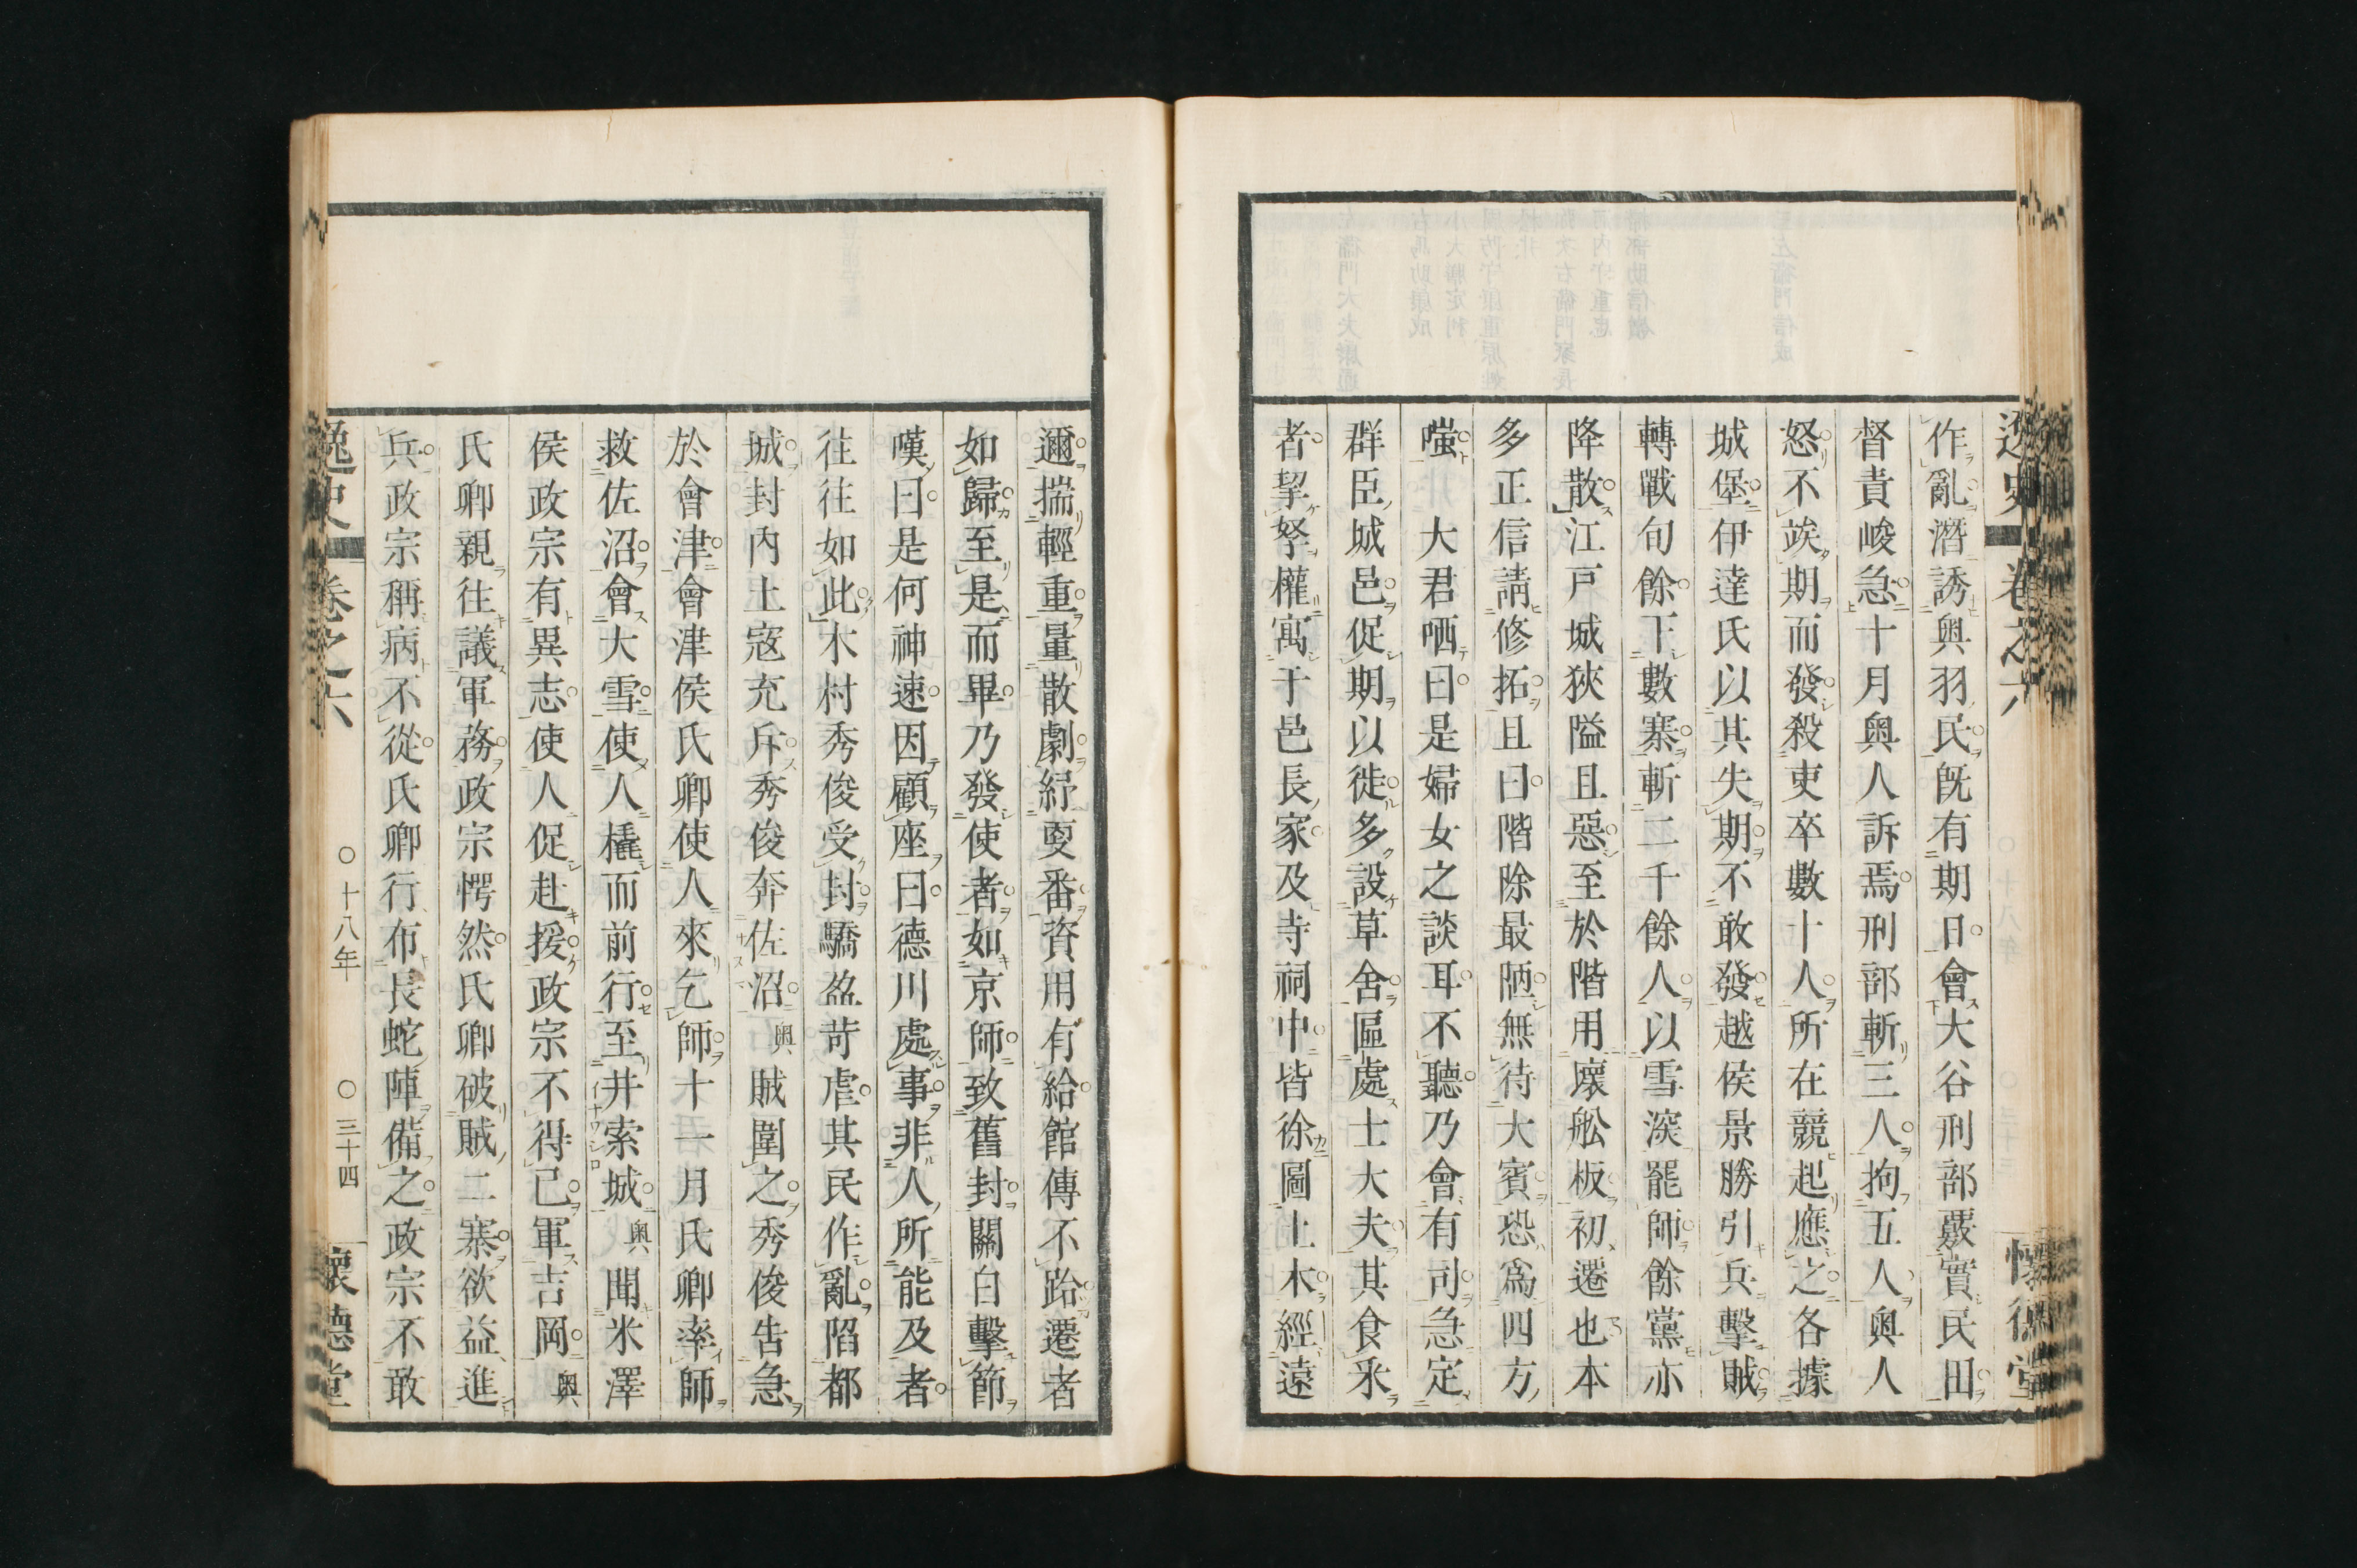 逸史 卷之六 懷德堂
作亂潛誘與羽民既有期日會大谷刑部覈實民田
督責峻急十月奧人訴焉刑部斬三人拘五人奧人
怒不竢期而發殺吏卒數十人所在競起應之各據
城堡伊達氏以其失期不敢發越侯景勝引兵擊賊
轉戰旬餘下數寨斬二千餘人以雪深罷師餘黨亦
降散江戸城狹隘且惡至於階用壞舩板初遷也本
多正信請修拓且曰階除最陋無待大賓恐爲四方
嗤大君哂曰是婦女之談耳不聽乃會有司急定
群臣城邑促期以徙多設草舍區處士大夫其食釆
者挈孥權寓于邑長家及寺祠中皆徐圖土木經遠
邇揣輕重量散劇紓更番資用有給館傳不跲遷者
如歸至是而畢乃發使者如京師致舊封關白擊節
嘆曰是何神速因顧座曰德川處事非人所能及者
往往如此木村秀俊受封驕盈苛虐其民作亂陷都
城封内土寇充斥秀俊奔佐沼奧賊圍之秀俊告急
於會津會津侯氏卿使人來乞師十一月氏卿率師
救佐沼會大雪使人橇而前行至井索城奧聞米澤
侯政宗有異志使人促赴援政宗不得已軍吉岡奧
氏卿親往議軍務政宗愕然氏卿破賊二寨欲益進
兵政宗稱病不從氏卿行布長蛇陣備之政宗不敢
逸史 卷之六 〇十八年 〇三十四 懷德堂